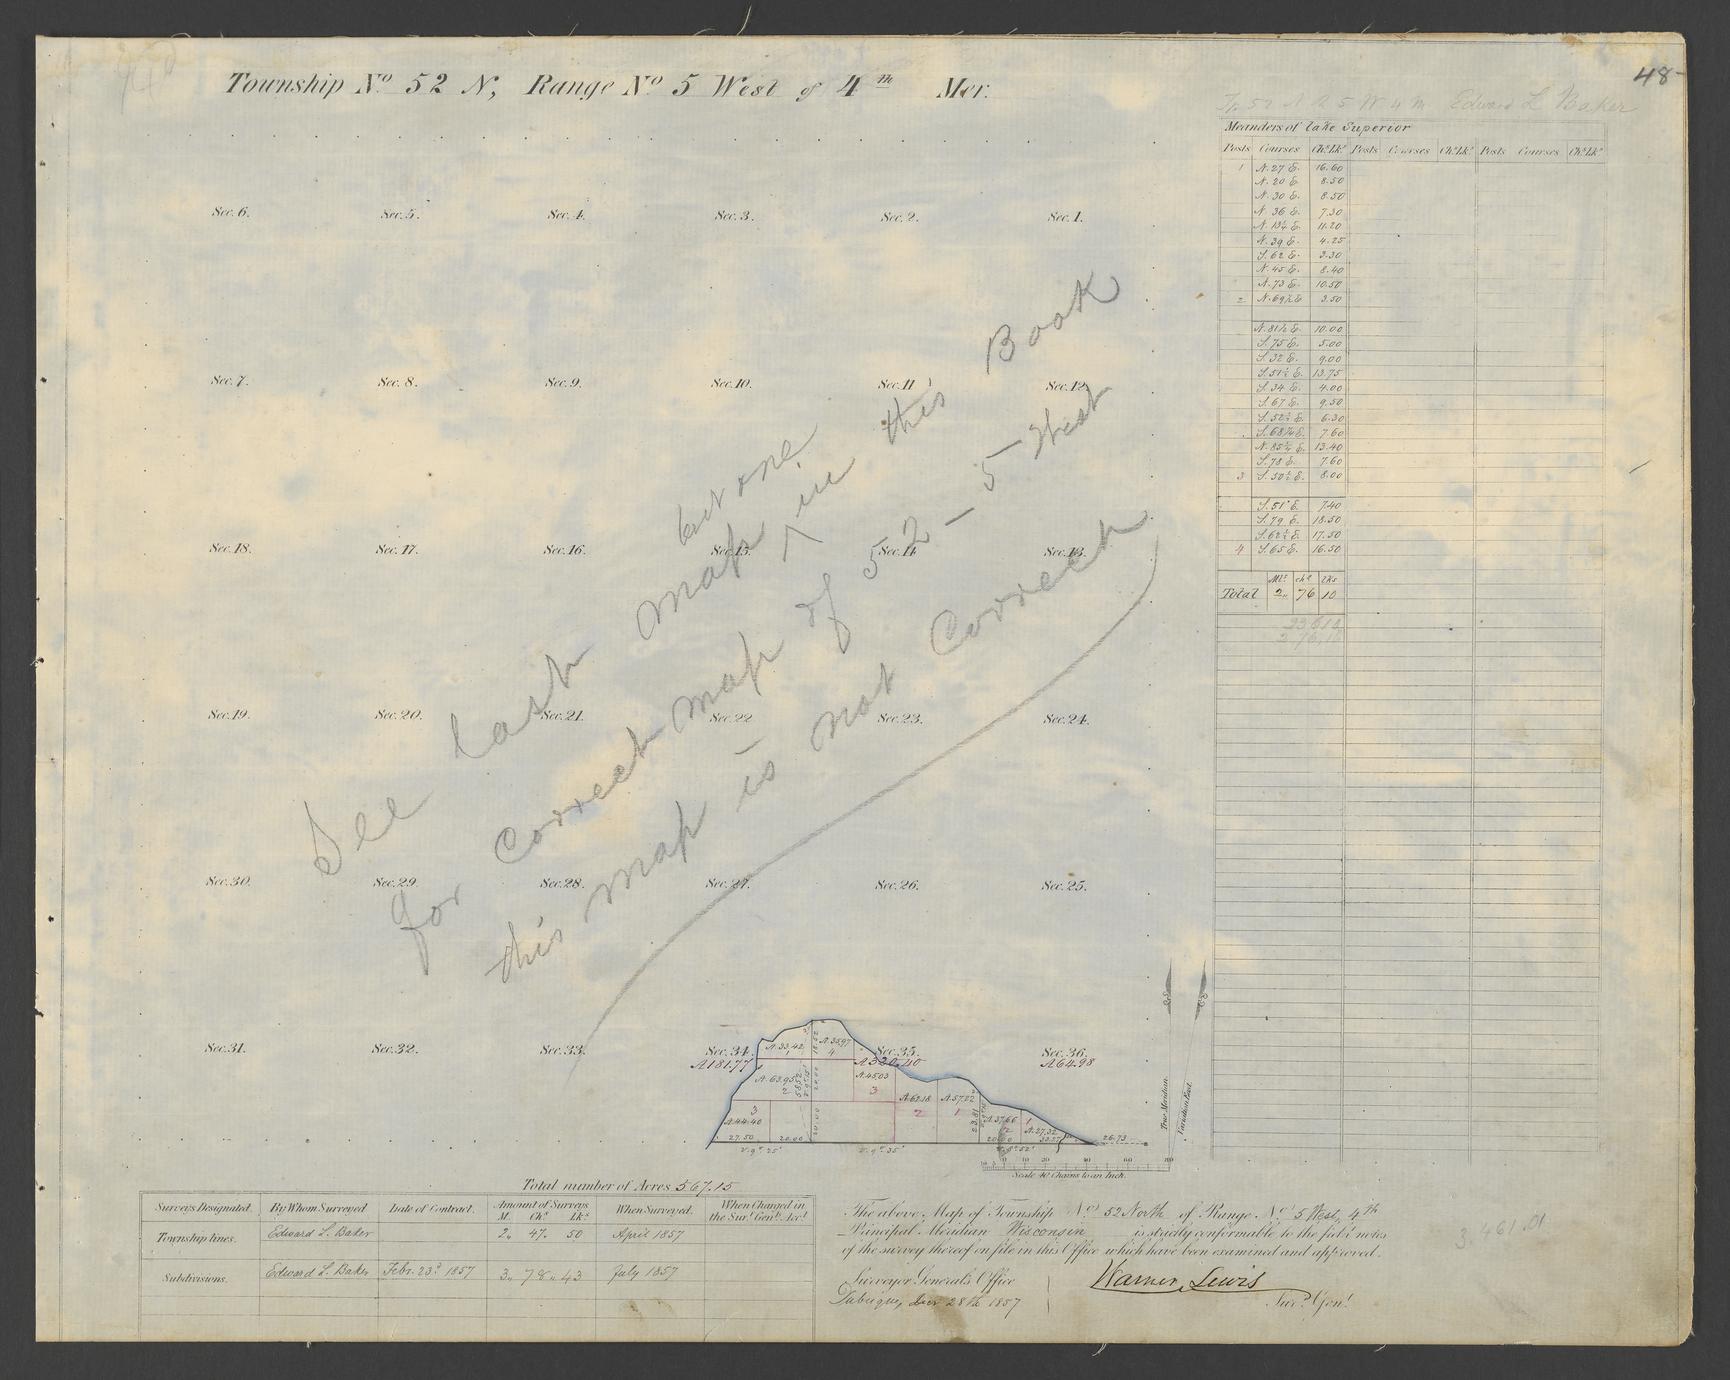 48
Township No. 52 N, Range No 5 West of 4th Mer.
Tp 52 N R 5 W 4 M Edward L Baker
Meanders of Lake Superior
Posts Courses Chs Lks Posts Courses Chs Lks Posts Courses Chs Lks
1 N. 27 E. 16.60
N. 20 E. 8.50
N. 30 E. 8.50
N. 36 E. 7.30
N. 13¼ E. 11.20
N. 39 E. 4.25
S. 62 E. 3.30
N. 45 E. 8.40
N. 73 E. 10.50
2 N. 69½ E 3.50
N. 81½ E. 10.00
S. 75 E. 5.00
S. 32 E. 9.00
S. 51½ E. 13.75
S. 34 E. 4.00
S. 67 E. 9.50
S. 52½ E. 6.30
S. 68¼ E. 7.60
N. 85½ E. 13.40
S. 78 E. 7.60
3 S. 50½ E. 8.00
S. 51° E. 7.40
S. 79 E. 18.50
S. 62½ E. 17.50
4 S. 65 E. 16.50
Mls chs lks
Total 2" 76 10
236,10
2 76,10
Sec. 6. Sec. 5. Sec. 4. Sec. 3. Sec. 2. Sec. 1.
Sec. 7. Sec. 8. Sec. 9. Sec. 10. Sec. 11 Sec. 12.
Sec. 18. Sec. 17. Sec. 16. Sec. 15. Sec. 14 Sec. 13.
Sec. 19. Sec. 20. Sec. 21. Sec. 22 Sec. 23. Sec. 24.
Sec. 30. Sec. 29. Sec. 28. Sec. 27. Sec. 26. Sec. 25.
Sec. 31. Sec. 32. Sec. 33. Sec. 34. Sec. 35. Sec. 36.
but one
See last map ^ in this Book
for correct map of 52 - 5 West
this map is not Correct
A 181.77 A 320.40 A 64.98
A. 33,42 A. 35.97
4
A. 63.95 A. 45.03
2 3
A. 62.18 A. 57.22
3 2 1
A. 44.40 A. 37.66 A. 27.32
2 1
27.50 20.00 20.00 26.73
V. 9° 25' V. 9° 35' V. 9° 52'
True Meridian.
Variation East.
Scale 40 Chains to an Inch.
Total number of Acres 567.15
Surveys Designated. By Whom Surveyed Date of Contract. Amount of Surveys When Surveyed. When Charged in the Surr Genls. Acct
M. Chs Lks
Township lines. Edward L. Baker 2" 47. 50 April 1857
Subdivisions. Edward L. Baker Febr. 23d 1857 3" 78" 43 July 1857
The above Map of Township No 52 North of Range No 5 West, 4th
Principal Meridian Wisconsin is strictly conformable to the field notes
of the survey thereof on file in this Office which have been examined and approved.
Surveyor General's Office
Dubuque, Dec 28th 1857
Warner Lewis
Surr Genl
3.461.01